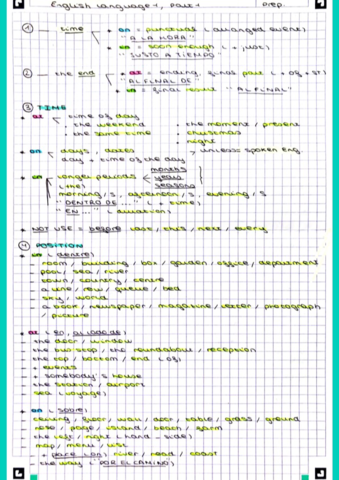 English Language 1, Part 1 Prep.
① — time • on = punctual (arranged event)
"A LA HORA"
• in = soon enough (+, just)
"JUSTO A TIEMPO"
② — the end • at = ending, final part (+ of + ST)
"AL FINAL DE"
• in = final result "AL FINAL"
③ TIME
• at time of day
: the weekend : the moment / present
: the same time : christmas
: night
• on days, dates > unless spoken Eng
day + time of the day
months
• in longer periods years
seasons
(the)
morning/s, afternoon/s, evening/s
"DENTRO DE..." (+ time)
"EN..." (duration)
• NOT USE = before last / this / next / every
④ POSITION
• in (dentro)
— room / building / box / garden / office / department
— pool / sea / river
— town / country / centre
— a line / row / queue / bed
— sky / world
— a book / newspaper / magazine / letter / photograph
/ picture
• at (en, al lado de)
— the door / window
— the bus stop / the roundabout / reception
— the top / bottom / end (of)
— + events
— + somebody's house
— the station / airport
— sea (voyage)
• on (sobre)
— ceiling / floor / wall / door / table / grass / ground
— nose / page / island / beach / farm
— the left / right (hand-side)
— map / menu / list
— + place (on) river / road / coast
— the way (POR EL CAMINO)